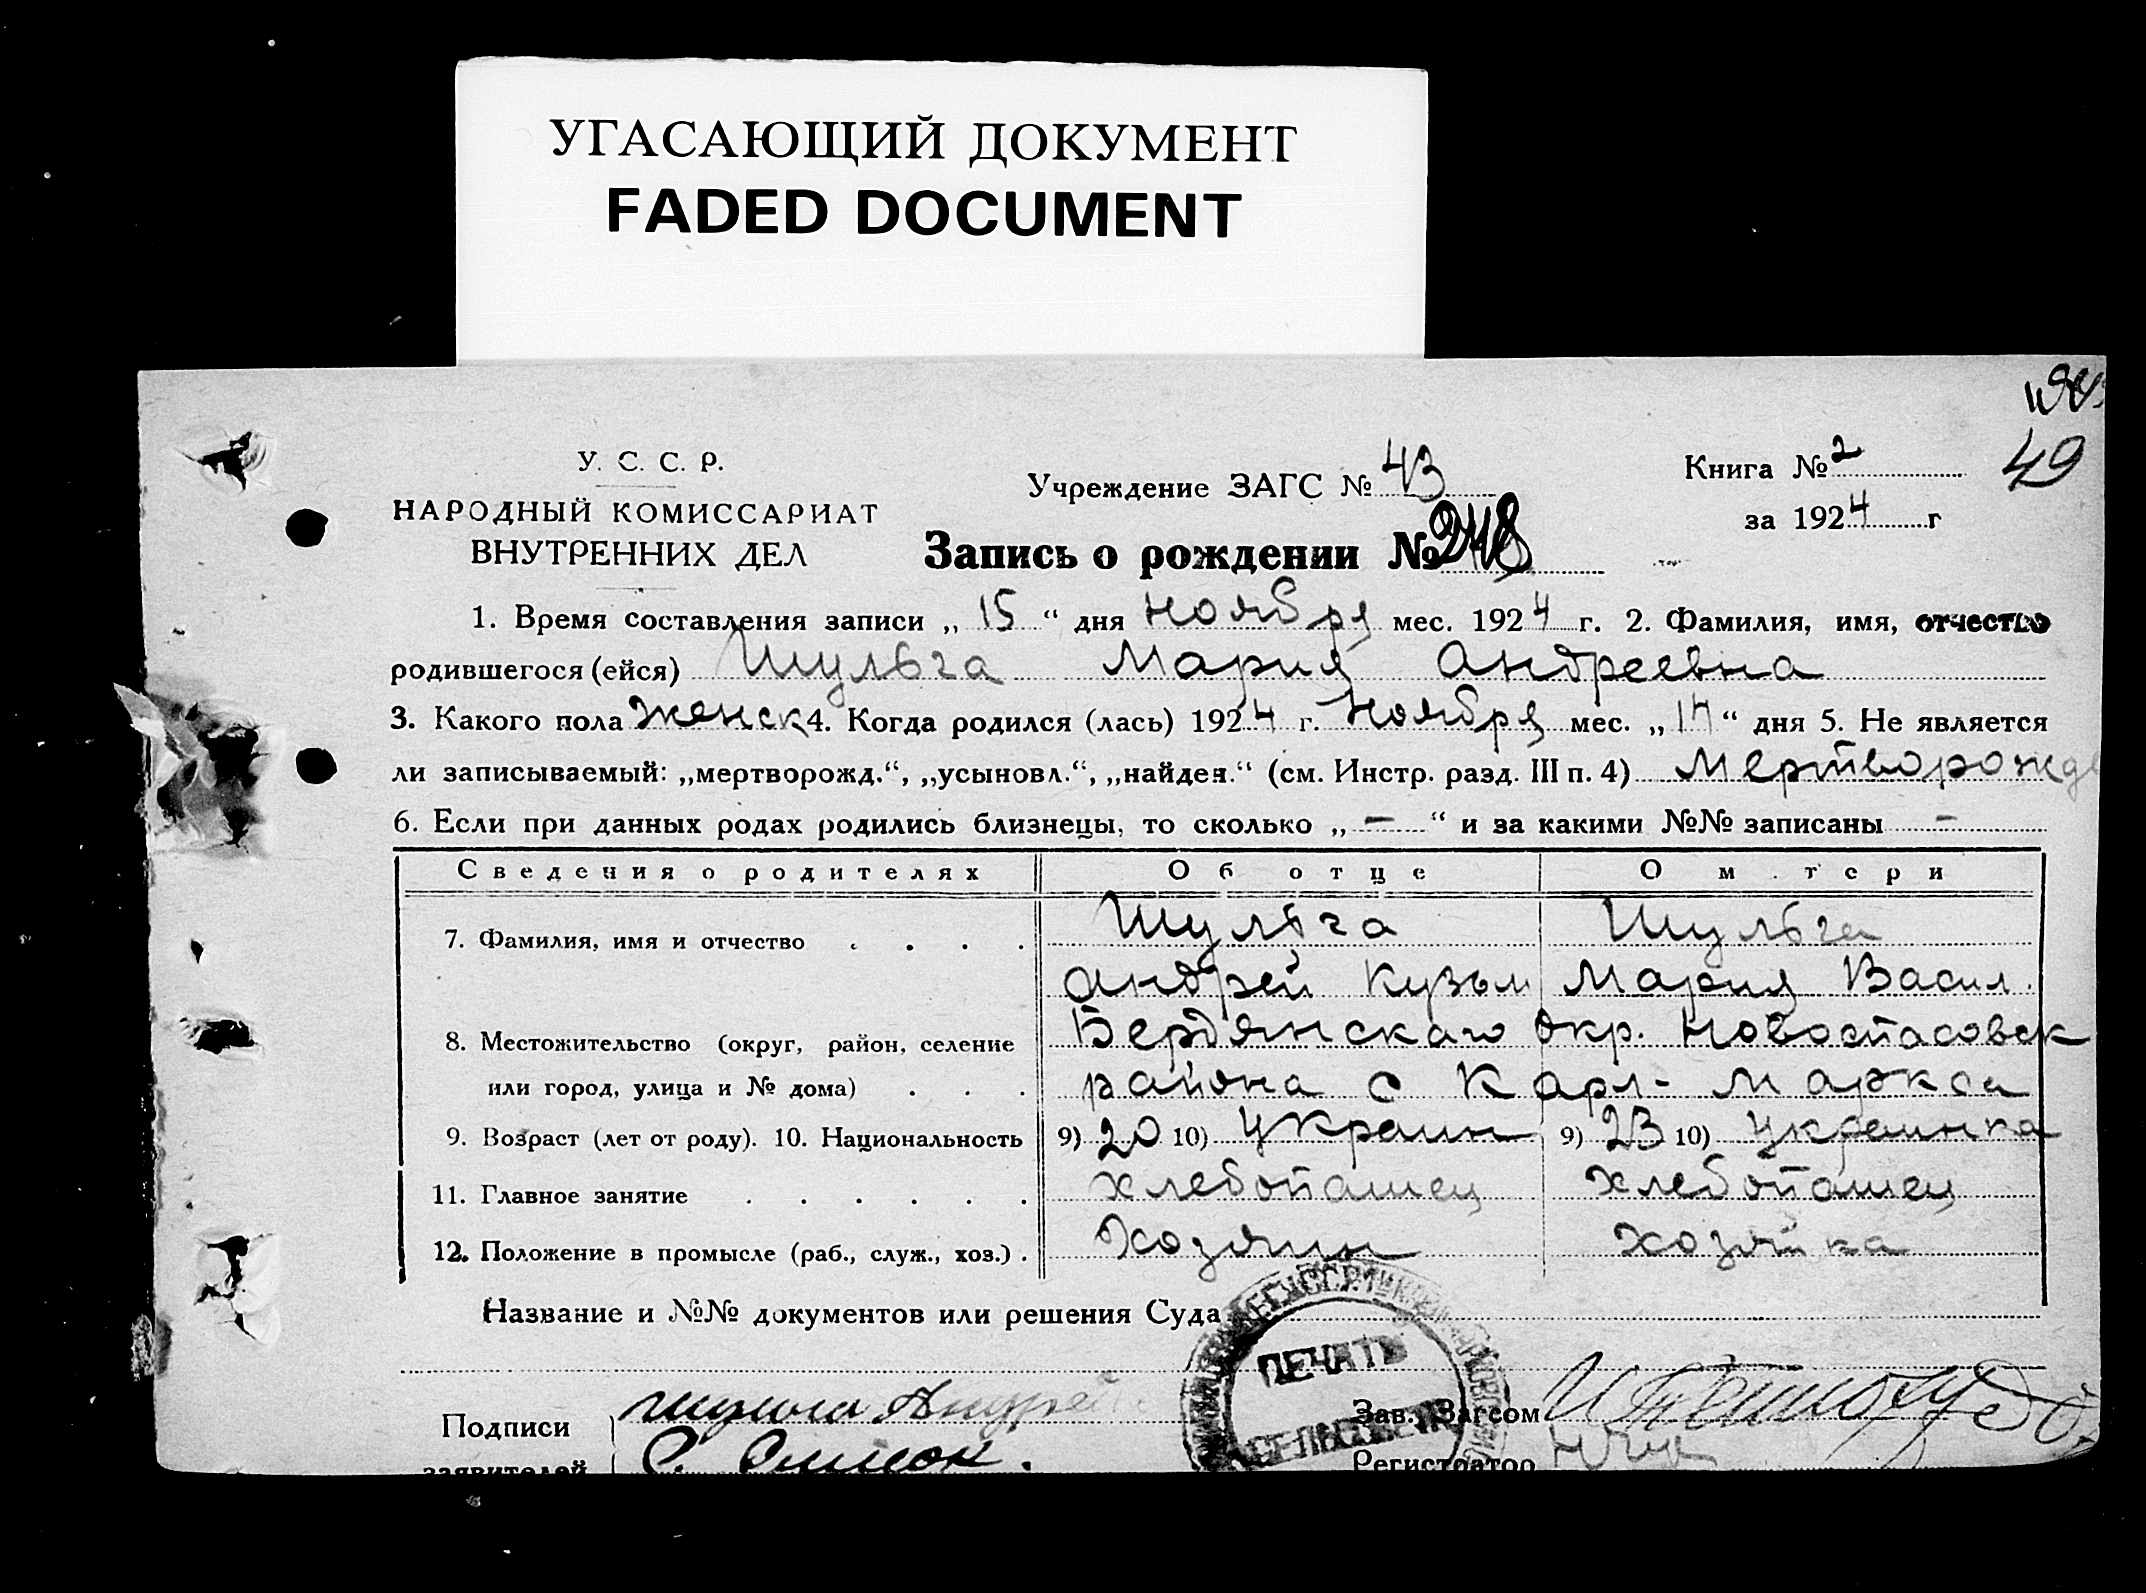 УГАСАЮЩИЙ ДОКУМЕНТ
FADED DOCUMENT
49
У. С. С. Р.
НАРОДНЫЙ КОМИССАРИАТ
ВНУТРЕННИХ ДЕЛ
Учреждение ЗАГС № 43
Книга № 2
за 1924 г
Запись о рождении № 248
1. Время составления записи „ 15 “ дня Ноября мес. 1924 г. 2. Фамилия, имя, отчество
родившегося (ейся) Шульга Мария Андреевна
3. Какого пола женск 4. Когда родился (лась) 1924 г. Ноября мес. „ 14 “ дня 5. Не является
ли записываемый: „мертворожд.“, „усыновл.“, „найден.“ (см. Инстр. разд. III п. 4) Мертворожд
6. Если при данных родах родились близнецы, то сколько „ — “ и за какими №№ записаны -
Сведения о родителях Об отце О м тери
7. Фамилия, имя и отчество Шульга Шульга
Андрей Кузьм Мария Васил.
8. Местожительство (округ, район, селение Бердянскаго окр. Новоспасовск
или город, улица и № дома) района с Карл-Маркса
9. Возраст (лет от роду). 10. Национальность 9) 20 10) Украин 9) 23 10) Украинка
11. Главное занятие хлебопашец хлебопашец
12. Положение в промысле (раб., служ., хоз.) Хозяин хозяйка
Название и №№ документов или решения Суда
ПЕЧАТЬ
СЕЛЬСОВЕТА
Подписи Шульга Андрей Зав. Загсом
заявителей С. Регистратор